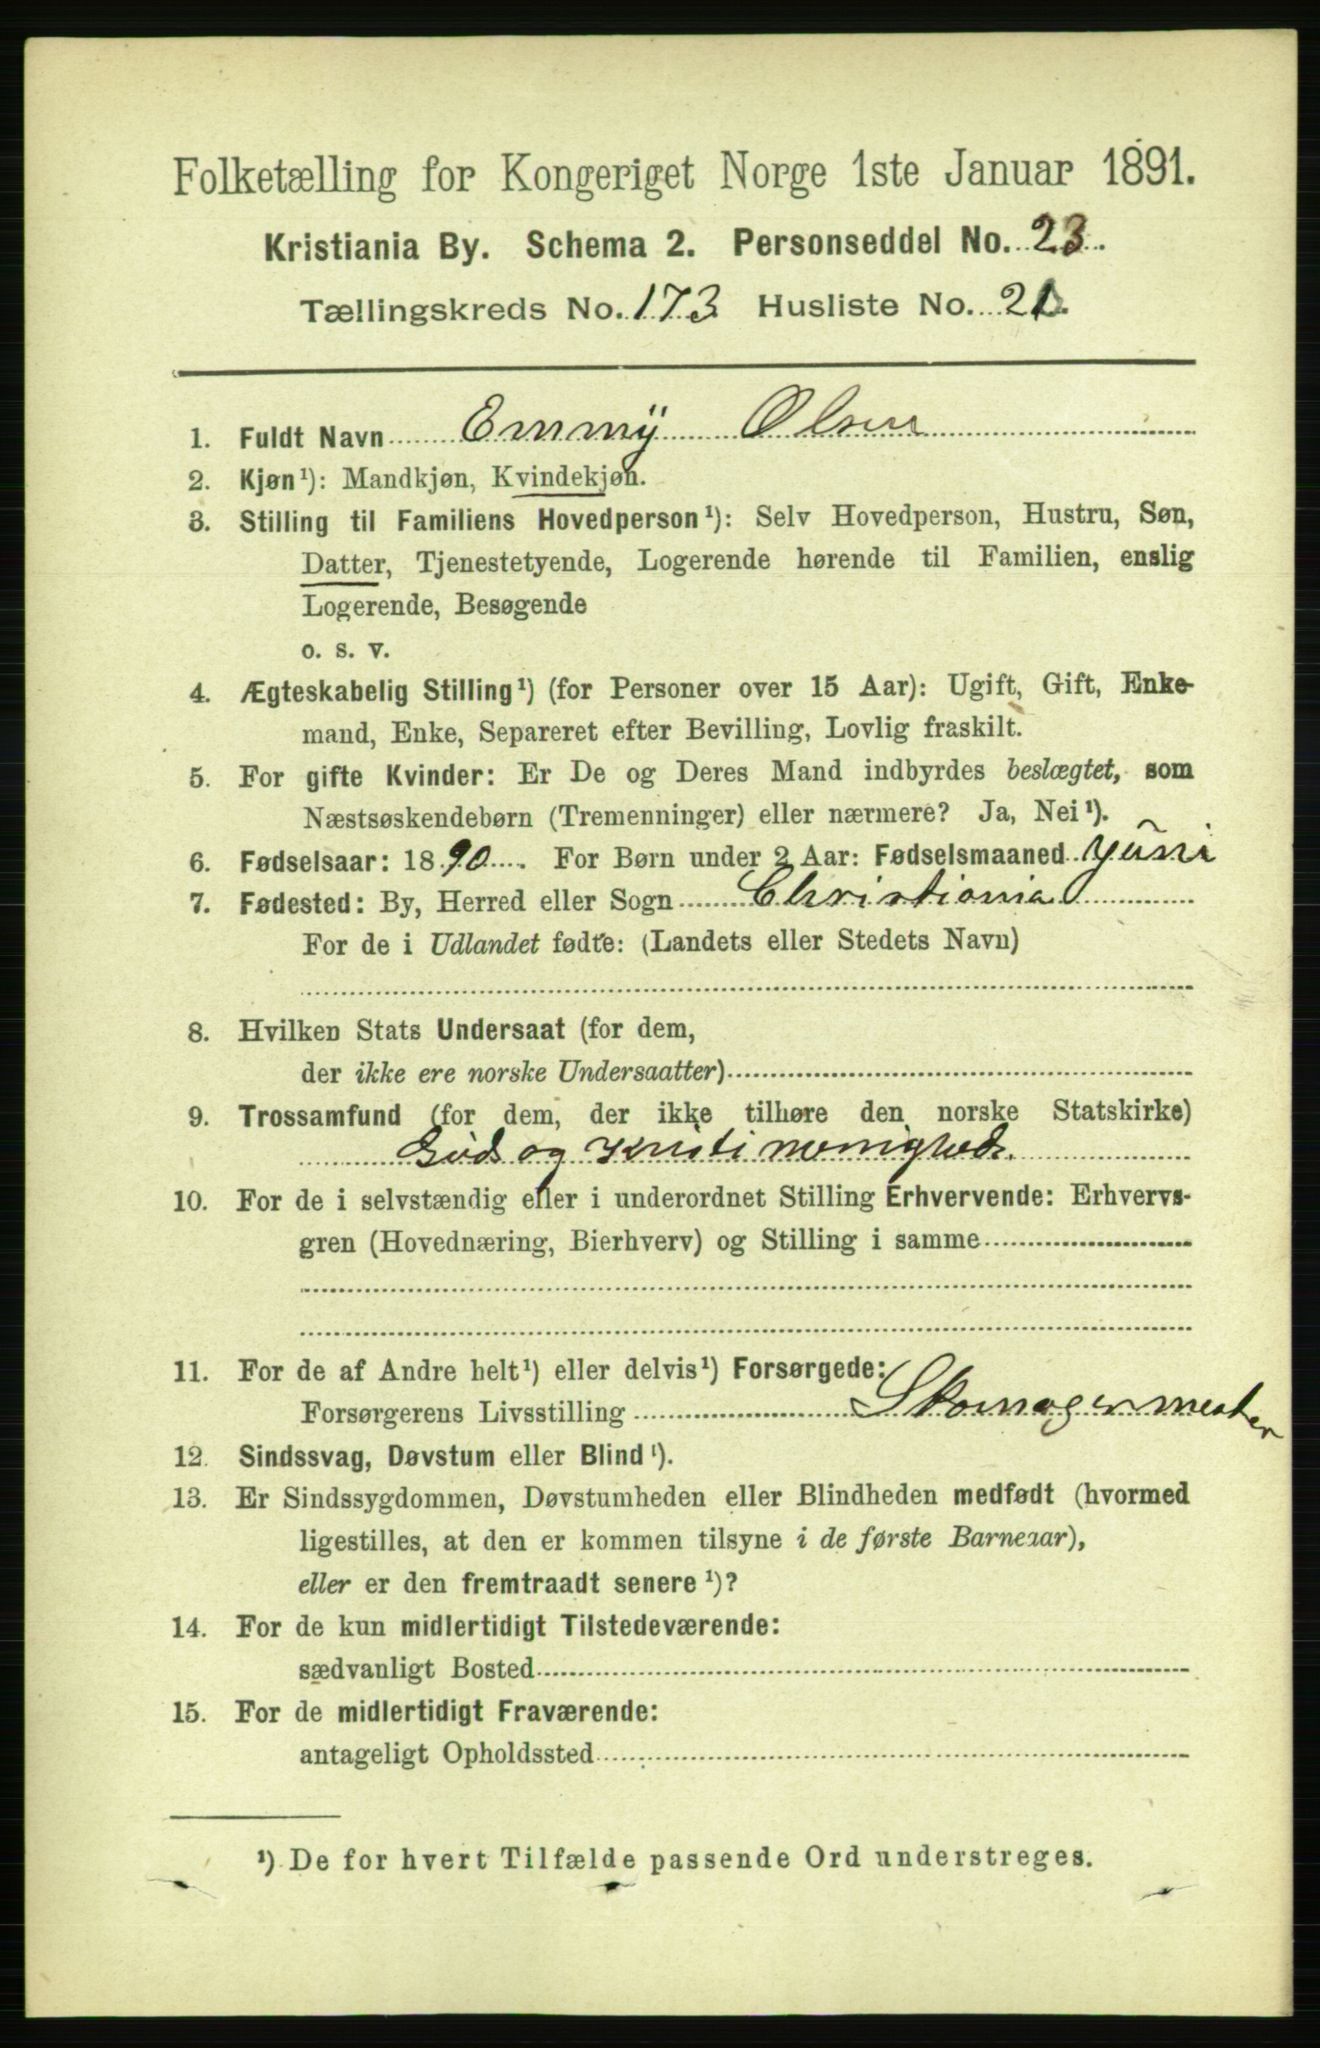 Folketælling for Kongeriget Norge 1ste Januar 1891.
Kristiania By. Schema 2. Personseddel No. 23.
Tællingskreds No. 173 Husliste No.
1. Fuldt Navn Emmÿ Olsen
2. Kjøn¹): Mandkjøn, Kvindekjøn.
3. Stilling til Familiens Hovedperson¹): Selv Hovedperson, Hustru, Søn,
Datter, Tjenestetyende, Logerende hørende til Familien, enslig
Logerende, Besøgende
o. s. v.
4. Ægteskabelig Stilling¹) (for Personer over 15 Aar): Ugift, Gift, Enke-
mand, Enke, Separeret efter Bevilling, Lovlig fraskilt.
5. For gifte Kvinder: Er De og Deres Mand indbyrdes beslægtet, som
Næstsøskendebørn (Tremenninger) eller nærmere? Ja, Nei¹).
6. Fødselsaar: 1890. For Børn under 2 Aar: Fødselsmaaned Yuni
7. Fødested: By, Herred eller Sogn Christiania
For de i Udlandet fødte: (Landets eller Stedets Navn)
8. Hvilken Stats Undersaat (for dem,
der ikke ere norske Undersaatter)
9. Trossamfund (for dem, der ikke tilhøre den norske Statskirke)
Guds og Kristi menighed.
10. For de i selvstændig eller i underordnet Stilling Erhvervende: Erhvervs-
gren (Hovednæring, Bierhverv) og Stilling i samme
11. For de af Andre helt¹) eller delvis¹) Forsørgede:
Forsørgerens Livsstilling Skomagermester
12. Sindssvag, Døvstum eller Blind¹).
13. Er Sindssygdommen, Døvstumheden eller Blindheden medfødt (hvormed
ligestilles, at den er kommen tilsyne i de første Barneaar),
eller er den fremtraadt senere¹)?
14. For de kun midlertidigt Tilstedeværende:
sædvanligt Bosted
15. For de midlertidigt Fraværende:
antageligt Opholdssted
¹) De for hvert Tilfælde passende Ord understreges.